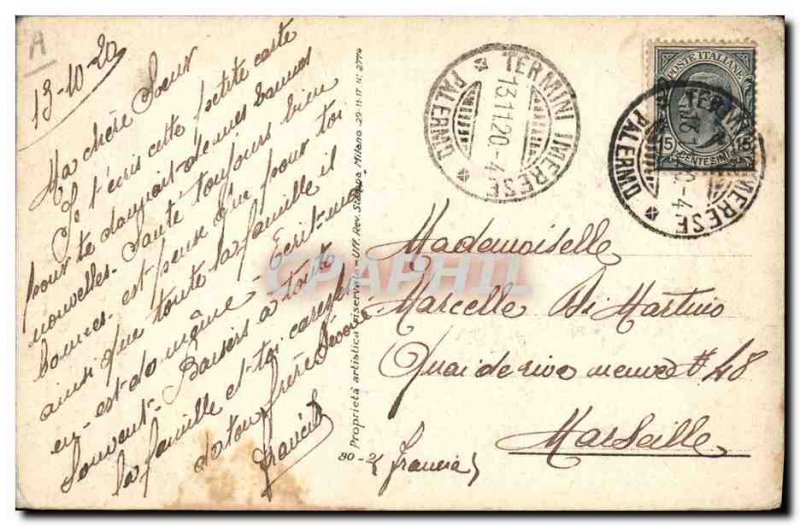 A
13-10-20
Ma chère Soeur
Je t'écris cette petite carte
pour te donner de mes bonnes
nouvelles - Santé toujours bien
bonnes - et pense que pour toi
ainsi que toute la famille il
en est de même - Écrit-moi
Souvent - Baisers à toute
la famille et toi caresses
de ton frère Dévoué
Proprietà artistica riservata - Uff. Rev. Stampa Milano 29-11-17 N. 2774
80-2
CPAPHIL
TERMINI IMERESE
13.11.20.-4
PALERMO
POSTE ITALIANE
15 15
CENTESIMI
TERMINI IMERESE
PALERMO
Mademoiselle
Marcelle Di Martino
Quai de rive neuve # 48
Marseille
(Francia)